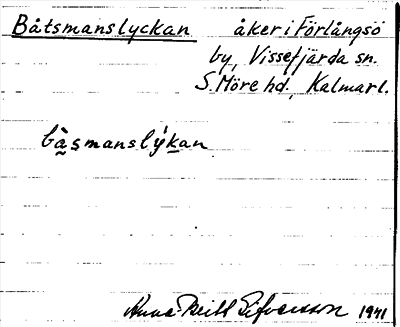 Båtsmanslyckan åker i Förlångsö
by, Vissefjärda sn.
S. Möre hd., Kalmarl.
bå̀smanslýkan
Anna-Britt Sifversson 1941